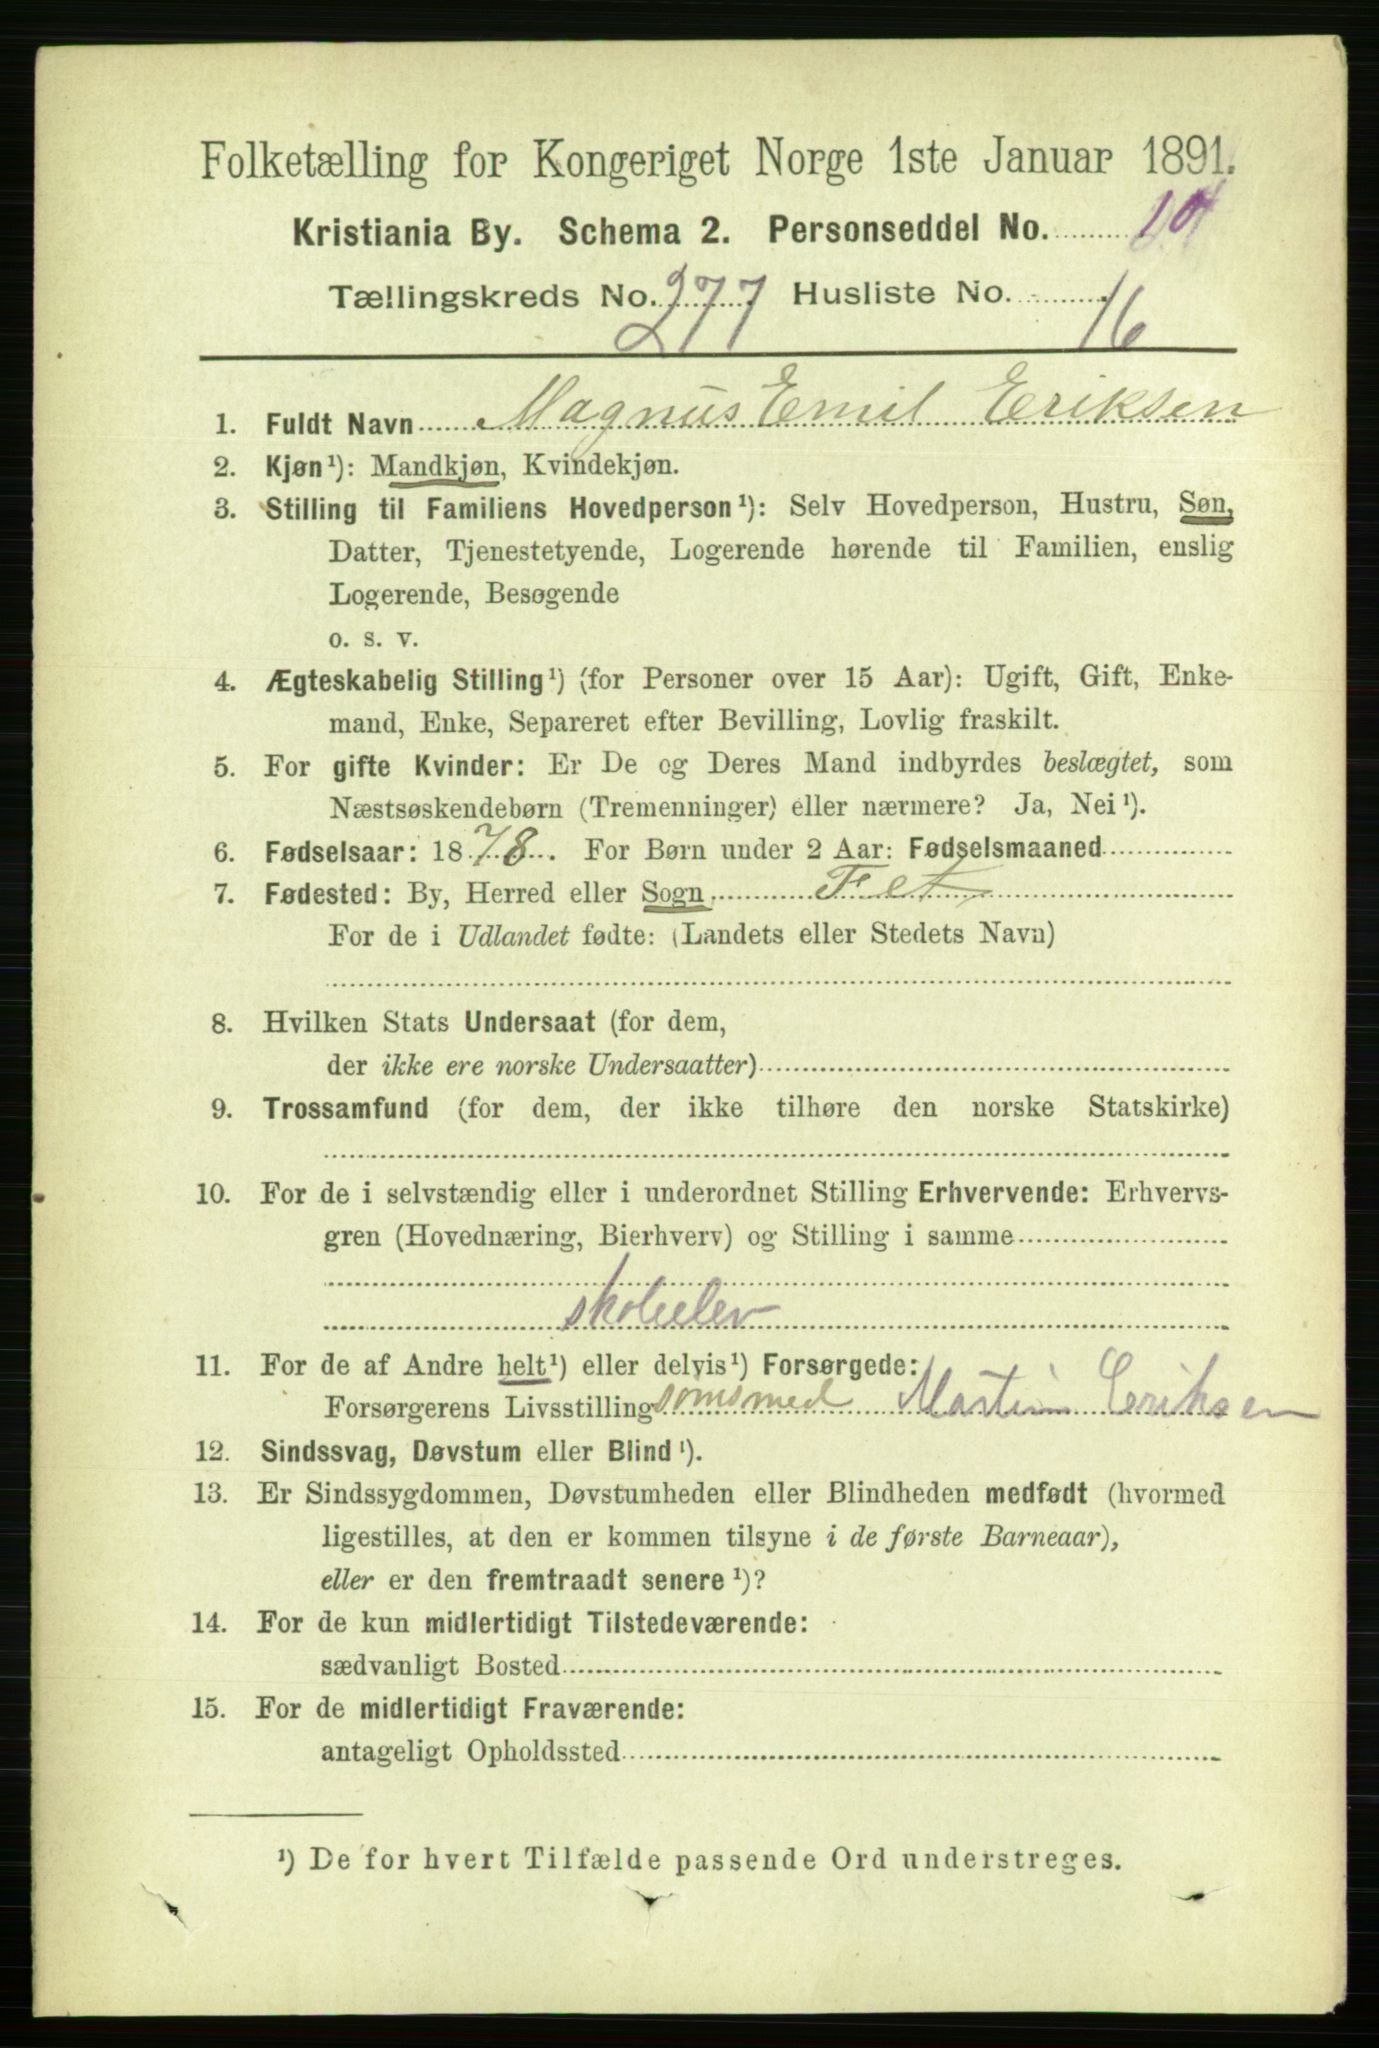 Folketælling for Kongeriget Norge 1ste Januar 1891.
Kristiania By. Schema 2. Personseddel No.
Tællingskreds No. 277. Husliste No. 16
1. Fuldt Navn Magnus Emil Eriksen
2. Kjøn¹): Mandkjøn, Kvindekjøn.
3. Stilling til Familiens Hovedperson¹): Selv Hovedperson, Hustru, Søn,
Datter, Tjenestetyende, Logerende hørende til Familien, enslig
Logerende, Besøgende
o. s. v.
4. Ægteskabelig Stilling¹) (for Personer over 15 Aar): Ugift, Gift, Enke-
mand, Enke, Separeret efter Bevilling, Lovlig fraskilt.
5. For gifte Kvinder: Er De og Deres Mand indbyrdes beslægtet, som
Næstsøskendebørn (Tremenninger) eller nærmere? Ja, Nei¹).
6. Fødselsaar: 1878. For Børn under 2 Aar: Fødselsmaaned
7. Fødested: By, Herred eller Sogn Fet
For de i Udlandet fødte: (Landets eller Stedets Navn)
8. Hvilken Stats Undersaat (for dem,
der ikke ere norske Undersaatter)
9. Trossamfund (for dem, der ikke tilhøre den norske Statskirke)
10. For de i selvstændig eller i underordnet Stilling Erhvervende: Erhvervs-
gren (Hovednæring, Bierhverv) og Stilling i samme
skoleelev
11. For de af Andre helt¹) eller delvis¹) Forsørgede:
Forsørgerens Livsstilling Martin Eriksen
12. Sindssvag, Døvstum eller Blind¹).
13. Er Sindssygdommen, Døvstumheden eller Blindheden medfødt (hvormed
ligestilles, at den er kommen tilsyne i de første Barneaar),
eller er den fremtraadt senere¹)?
14. For de kun midlertidigt Tilstedeværende:
sædvanligt Bosted
15. For de midlertidigt Fraværende:
antageligt Opholdssted
¹) De for hvert Tilfælde passende Ord understreges.